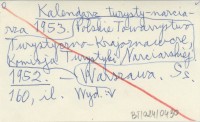 Kalendarz turysty-narcia-
rza 1953. Polskie Towarzystwo
Turystyczno-Krajoznawcze,
Komisja Turystyki Narciarskiej
1952. - Warszawa. Ss.
160, il. Wyd. v